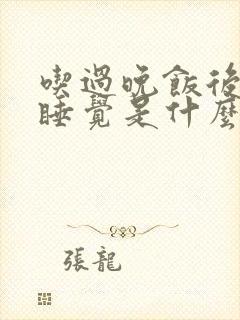 喫過晚飯後
睡覺是什麼
張龍